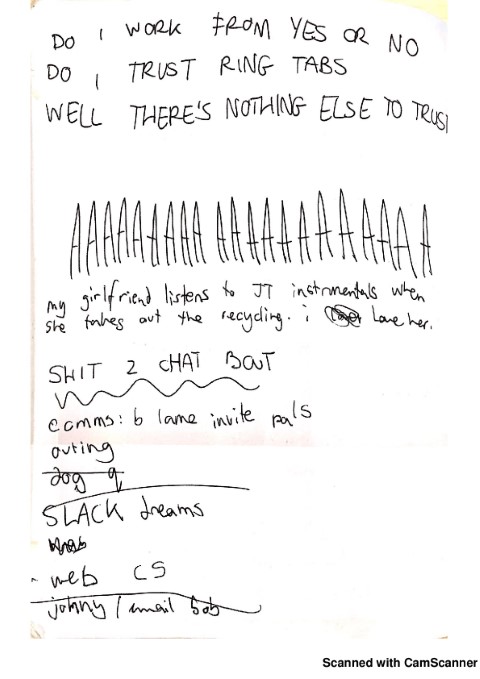 DO I WORK FROM YES OR NO
DO I TRUST RING TABS
WELL THERE'S NOTHING ELSE TO TRUST
AAAAAAAAA AAAAAAAAAAAAA
my girlfriend listens to JT instrmentals when
she takes out the recycling. i love her.
SHIT 2 CHAT BOUT
comms: b lame invite pals
outing
dog q
SLACK dreams
web CS
johnny / email bob
Scanned with CamScanner